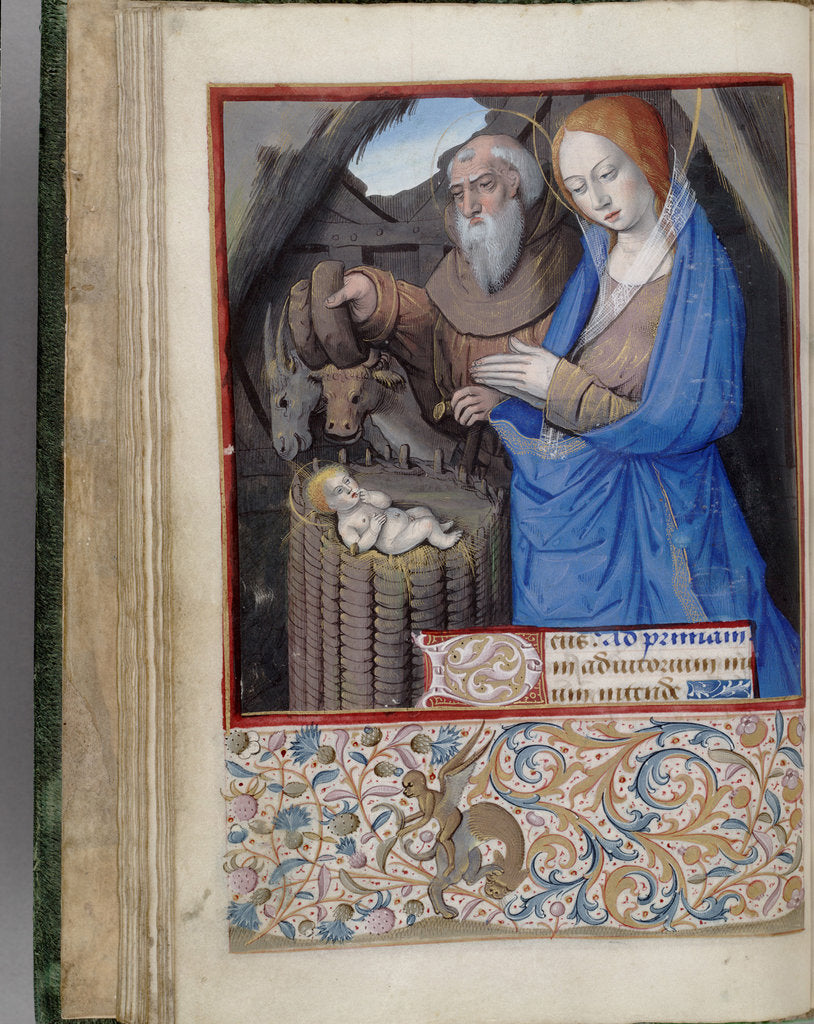 Deus. Ad primam.
in adiutorium m
um intende